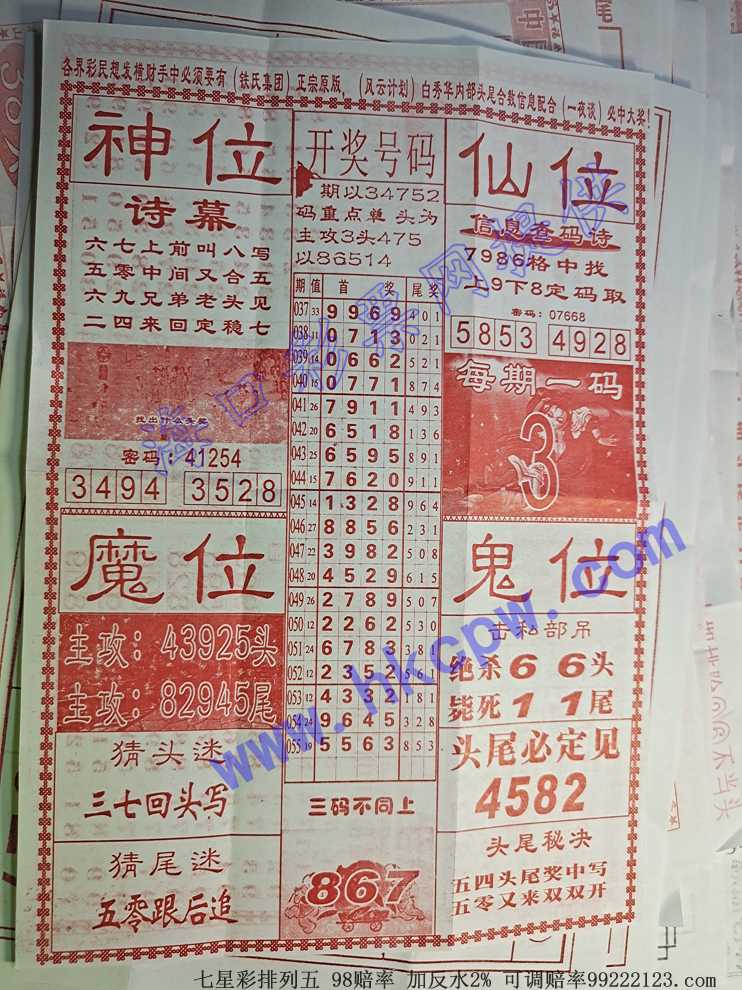 各界彩民想发横财手中必须要有（铁氏集团）正宗原版，（风云计划）白秀华内部头尾合数信息配合（一夜谈）必中大奖！
神位
诗幕
六七上前叫八写
五零中间又合五
六九兄弟老头见
二四来回定稳七
找出什么头奖
密码：41254
3494 3528
开奖号码
期以34752
码重点单头为
主攻3头475
以86514
期 值 首 奖 尾奖
037 33 9969 401
038 11 0713 021
039 14 0662 521
040 15 0771 874
041 26 7911 493
042 20 6518 136
043 26 6595 891
044 15 7620 911
045 14 1328 964
046 27 8856 231
047 22 3982 508
048 20 4529 615
049 26 2789 507
050 12 2262
051 24 6783 381
052 12 2352 56
053 12 4332 181
054 24 9645 328
055 19 5563 853
三码不同上
867
仙位
信息查码诗
7986格中找
上9下8定码取
密码：07668
5853 4928
每期一码
3
魔位
主攻：43925头
主攻：82945尾
猜头迷
三七回头写
猜尾迷
五零跟后追
鬼位
击私部吊
绝杀66头
毙死11尾
头尾必定见
4582
头尾秘决
五四头尾奖中写
五零又来双双开
海口彩票网提供
www.hkcpw.com
七星彩排列五 98赔率 加反水2% 可调赔率99222123.com